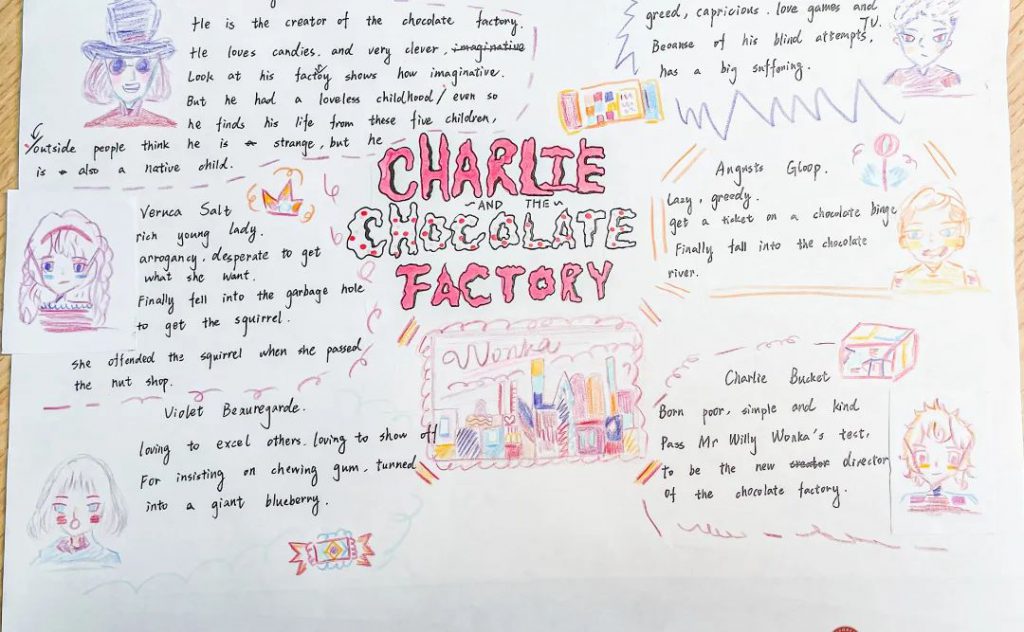 He is the creator of the chocolate factory.
He loves candies. and very clever, imaginative
Look at his factoy shows how imaginative.
But he had a loveless childhood, even so
he finds his life from these five children,
outside people think he is a strange, but he
is a also a native child.
greed, capricious. love games and
TV.
Beoanse of his blind attempts,
has a big suffoning.
CHARLIE
AND THE
CHOCOLATE
FACTORY
Wonka
Veruca Salt
rich young lady.
arrogancy. desperate to get
what she want.
Finally fell into the garbage hole
to get the squirrel.
She offended the squirrel when she passed
the nut shop.
Angusts Gloop.
Lazy, greedy.
get a ticket on a chocolate binge
Finally fall into the chocolate
river.
Violet Beauregarde.
loving to excel others. loving to show off
For insisting on chewing gum, turned
into a giant blueberry.
Charlie Bucket
Born poor, simple and kind
Pass Mr Willy Wonka's test,
to be the new creator director
of the chocolate factory.